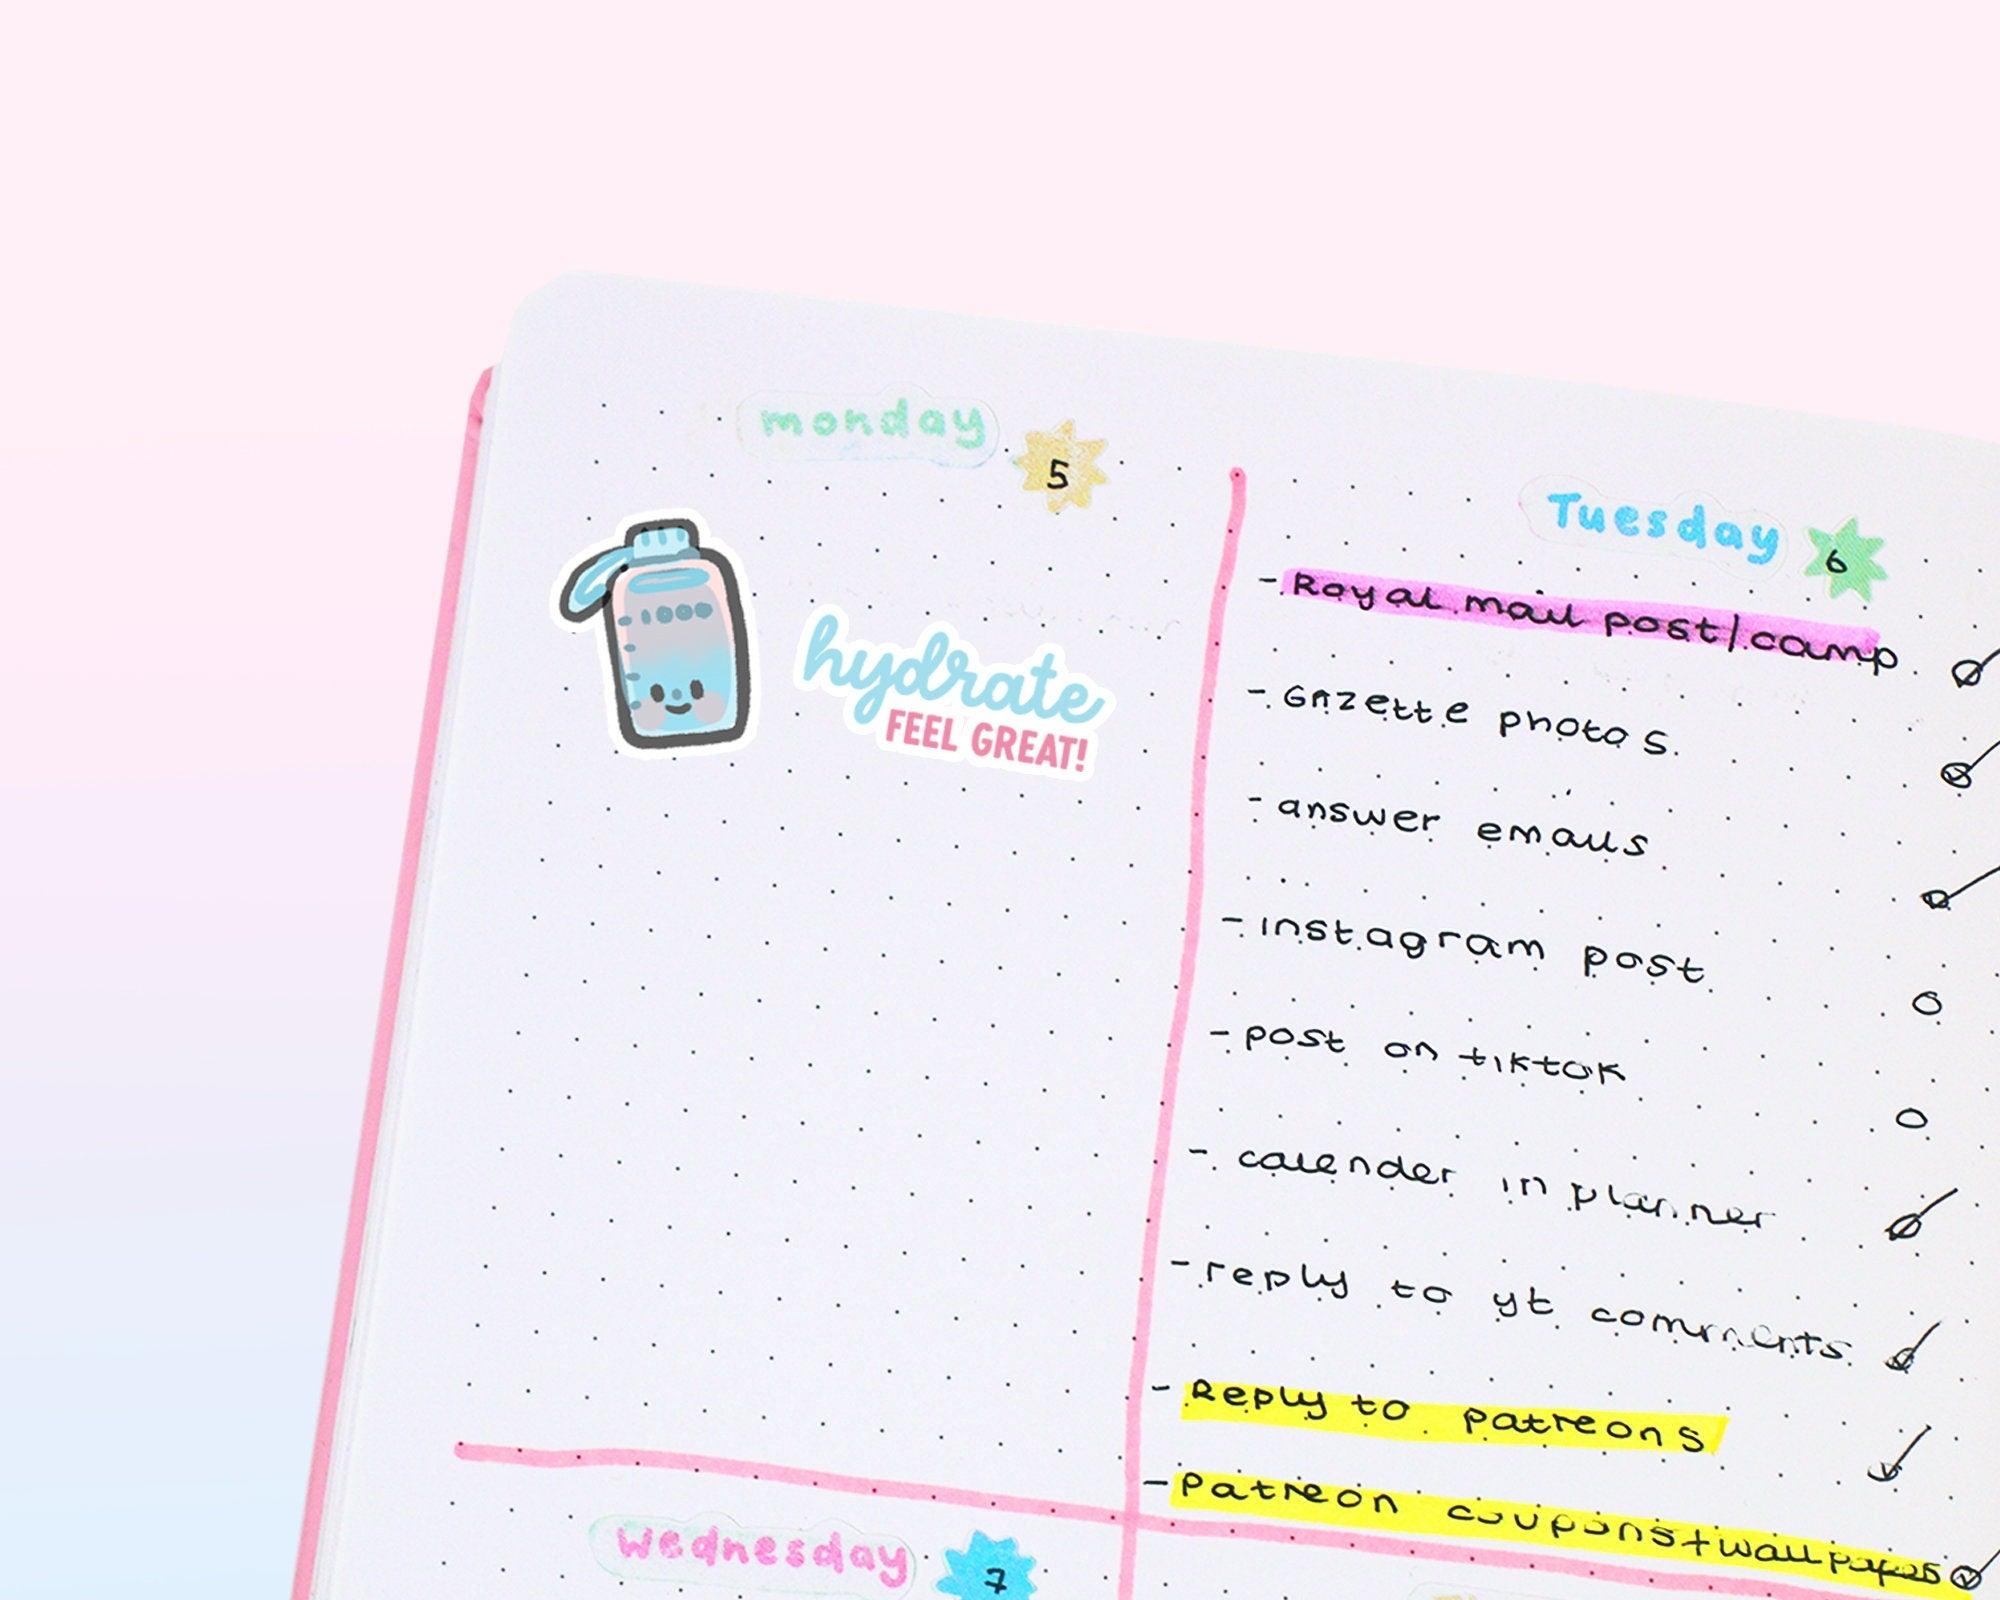 monday
5
1000
hydrate
FEEL GREAT!
Tuesday
6
- Royal mail post/camp
- Gazette photos
- answer emails
- instagram post
- post on tiktok
- calender in planner
- reply to yt comments
- Reply to patreons
- Patreon coupons+wallpapers
wednesday
7